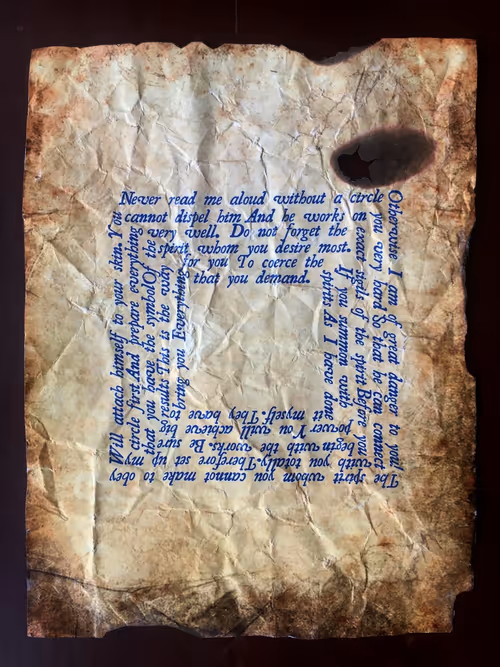 Never read me aloud without a circle
Otherwise I am of great danger to you!
The spirit whom you cannot make to obey
Will attach himself to your skin. You
cannot dispel him And he works on
you very hard So that he can connect
with you totally. Therefore set up my
circle first And prepare everything
very well. Do not forget the
exact sigils of the spirit Before you
begin with the works. Be sure
that you have the symbol Of the
spirit whom you desire most.
If you summon with
power You will achieve big
results This is the way
for you To coerce the
spirits As I have done
it myself. They have to
bring you Everything
that you demand.